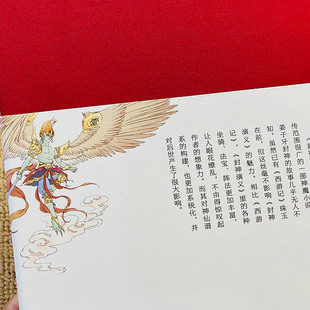 《封
传范围很广的一部神魔小说
姜子牙封神的故事几乎无人不
知，虽然已有《西游记》珠玉
在前，但这丝毫不影响《封神
演义》的魅力。相比《西游
记》，《封神演义》里的各种
坐骑、法宝、阵法更加丰富，
让人眼花缭乱，不由得惊叹起
作者的想象力，而其对神仙谱
系的构建，也更加系统化，并
对后世产生了很大影响。